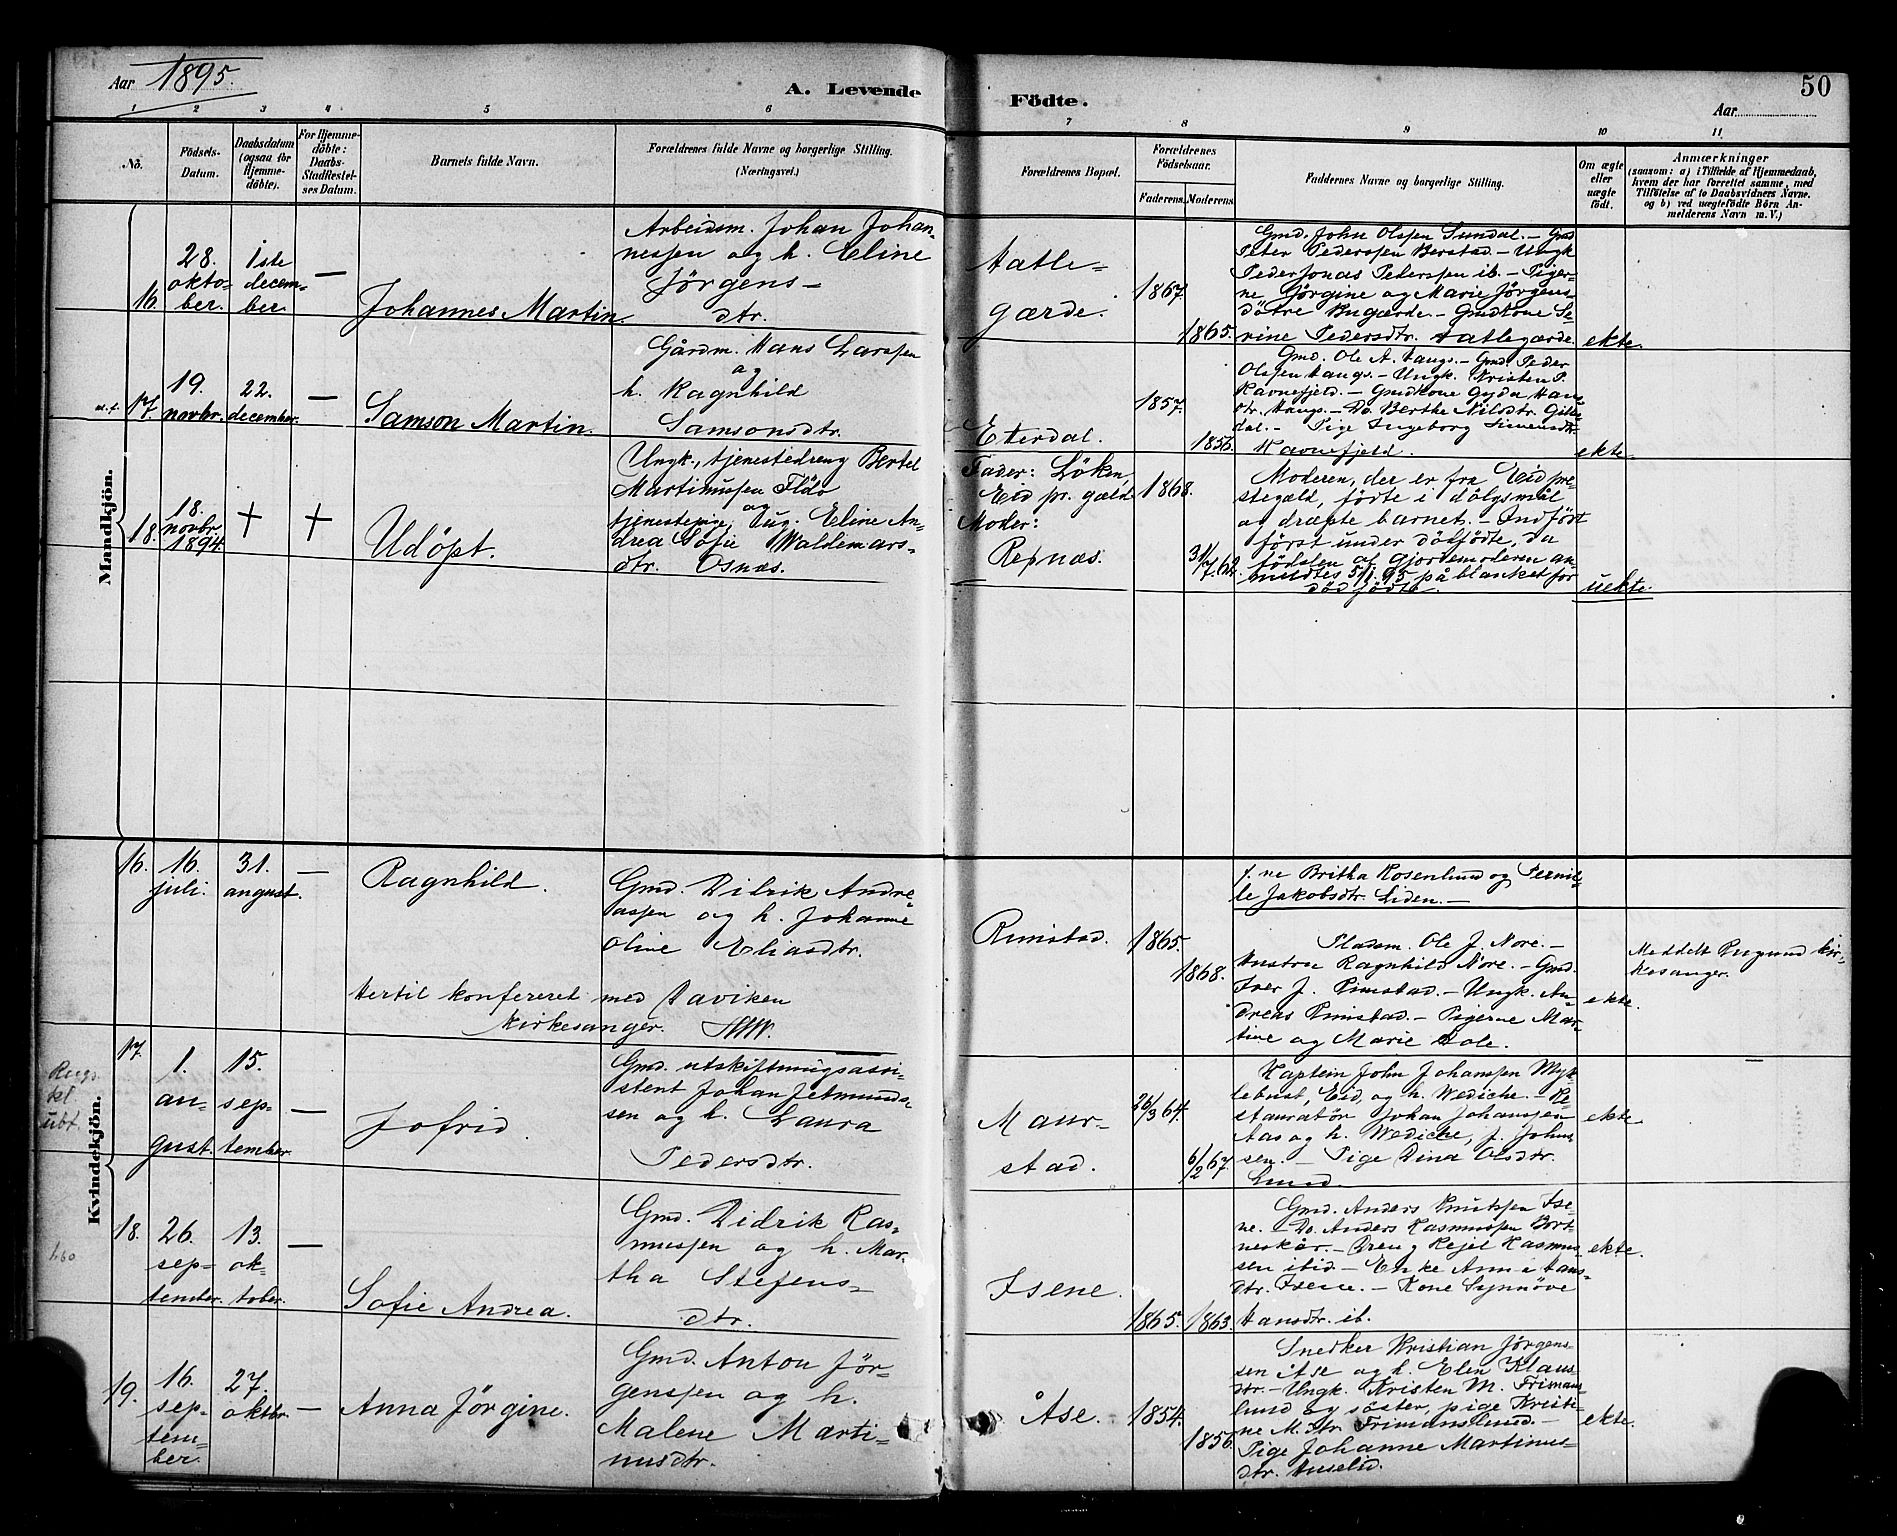 Aar 1895.
A. Levende
Födte.
Aar
50
1
2
3
4
5
6
7
8
9
10
11
No.
Födsels-
Datum.
Daabsdatum
(ogsaa for
Hjemme-
döbte).
For Hjemme-
döbte:
Daabs-
Stadfæstel-
ses Datum.
Barnets fulde Navn.
Forældrenes fulde Navne og borgerlige Stilling.
(Næringsvei.)
Forældrenes Bopæl.
Forældrenes
Födselsaar.
Faderens.
Moderens.
Faddernes Navne og borgerlige Stilling.
Om ægte
eller
uægte
födt.
Anmærkninger
(saasom: a) i Tilfælde af Hjemmedaab,
hvem der har forrettet samme, med
Tilföielse af to Daabsvidners Navne.
og b) ved uægtefödte Börn An-
melderens Navn m. V.)
Mandkjön.
16.
28.
okto-
ber.
1ste
decem-
ber.
—
Johannes Martin.
Arbeidsm. Johan Johan-
nessen og h. Eline
Jörgens-
dtr.
Aatle-
gærde.
1867.
1865.
Gmd. John Olssen Sundal. — Gmd
Peter Pederssen Berstad. — Ungk
Peder Jonas Pederssen ib. — Piger-
ne Jörgine og Marie Jörgens-
dötre Rygærde. — Gmdkone Se-
rine Pedersdtr. Aatlegærde.
ekte.
17.
19.
novbr.
22.
december.
—
Samson Martin.
Gårdm. Hans Larssen
og
h. Ragnhild
Samsonsdtr.
Eterdal.
1857.
1856.
Gmd. Ole A. Haugs. — Gmd. Peder
Olssen Haugs. — Ungk. Kristen P.
Ravnefjeld. — Gmdkone Gyda Han-
dtr. Haugs. — Do. Berthe Nilsdtr.
dal. — Pige Ingeborg Simensdtr.
Ravnefjeld.
ekte
18.
18.
novbr
1894.
+
+
Udöpt.
Ungk., tjenestedreng Bertel
Martinussen Flåo
og
tjenestepige, Eline An-
drea Sofie Waldemars-
dtr. Osnæs.
Fader: Löken,
Eid pr. gæld
Moder:
Repnæs.
1868.
31/7.62.
Moderen, der er fra Eid pre-
stegæld, födte i dölgsmål
og dræpte barnet. — Indfört
först under dödfödte, da
födslen af gjordemoderen an-
meldtes 5/1.95 på blanket for
dödfödte.
uekte.
Kvindekjön.
16.
16.
juli.
31.
august.
—
Ragnhild.
Gmd. Didrik Andre-
assen og h. Johanne
Oline Eliasdtr.
Hertil konfereret med Raviken
kirkesanger.
Rimstad.
1865.
1868.
f. ne Britha Rosenlund og Pernil-
le Jakobsdtr. Liden. —
Pladsm. Ole J. Nore. —
Hustru Ragnhild Nore. — Gmd.
Iver J. Rimstad. — Ungk. An-
dreas Rimstad. — Pigerne Mar-
tine og Marie Hole.
ekte.
Meddelt Rugsund kir-
kesanger.
17.
1.
au-
gust.
15.
sep-
tember.
—
Jofrid.
Gmd. utskiftningsassi-
stent Johan Jetmunds-
sen og h. Laura
Pedersdtr.
Maur-
stad.
26/3 64.
6/2 67.
Kaptein John Johanssen Myk-
lebust, Eid, og h. Wediche. — Re-
stauratör Johan Johanssen
Aas og h. Wediche, f. Johns-
sen. — Pige Dina Olsdtr.
Lund.
ekte
—
18.
26.
sep-
tember.
13.
ok-
tober.
—
Sofie Andrea.
Gmd. Didrik Ras-
mussen og h. Mar-
tha Stefens-
dtr.
Isene.
1865.
1863.
Gmd. Anders Knutssen Ise-
ne. — Do. Anders Rasmussen Bort-
neskår. — Dreng Kejel Rasmus-
sen ibid — Enke Anna Hans-
dtr. Isene. — Kone Synnöve
Hansdtr. ib.
ekte.
19.
16.
sep-
tem-
ber.
27.
oktbr.
—
Anna Jörgine.
Gmd. Anton Jör-
genssen og h.
Malene Marti-
nusdtr.
Åse.
1854.
1856.
Snedker Kristian Jörgens-
sen Åse og h. Elen Klaus-
dtr. — Ungk. Kristen M. Frimans-
lund og söster, pige Kristi-
ne M. dtr. Frimanslund. —
Pige Johanne Martinus-
dtr.
ekte.